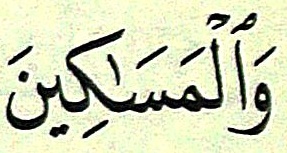 وَٱلْمَسَٰكِينَ